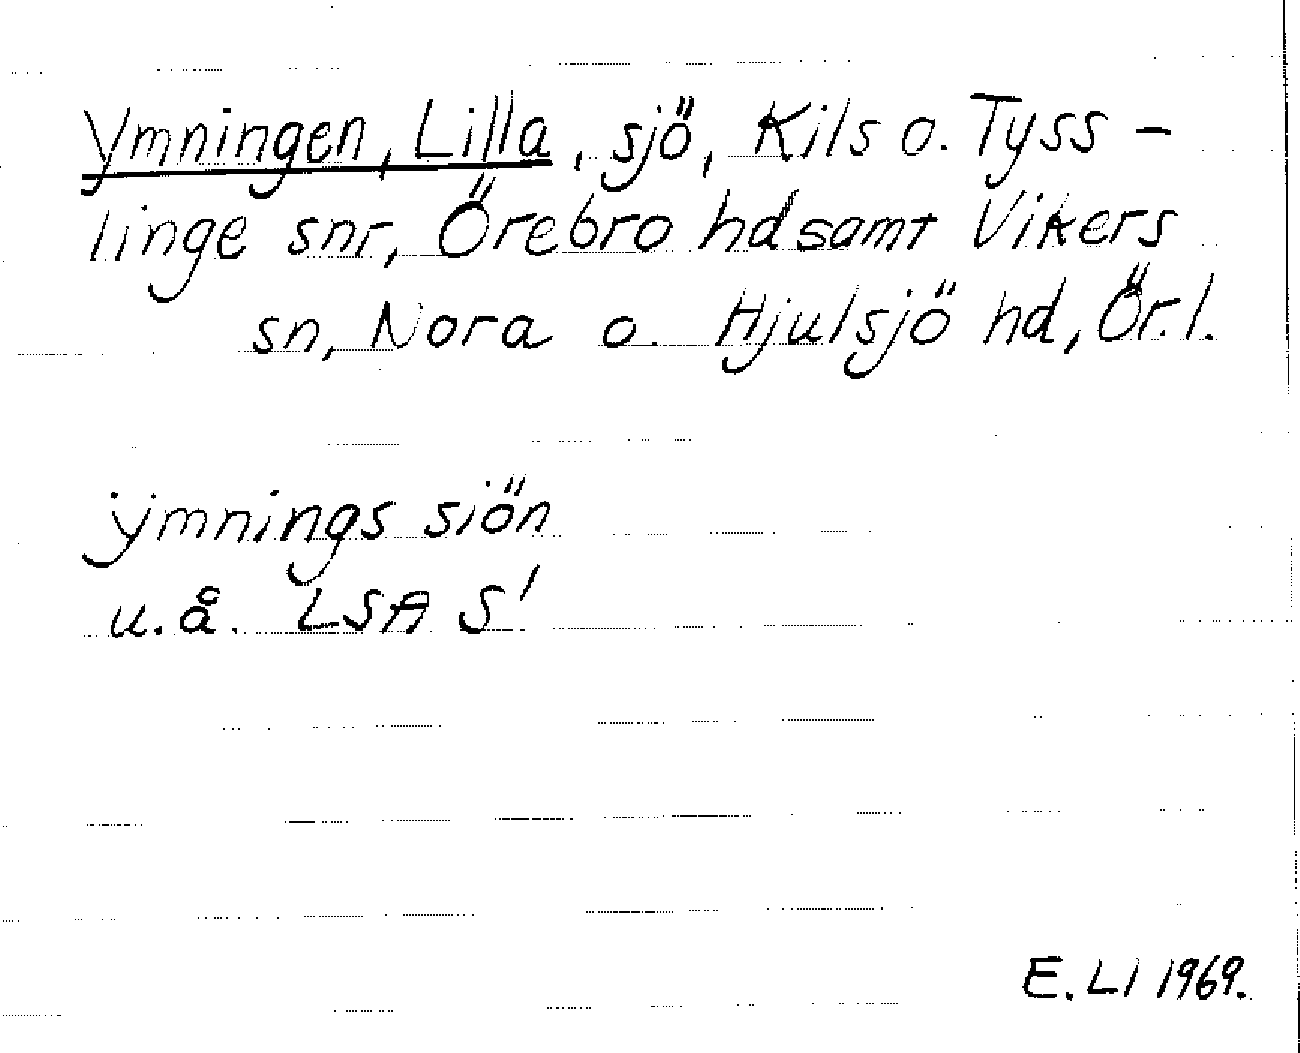 Ymningen, Lilla, sjö, Kils o. Tyss-
linge snr, Örebro hd samt Vikers
sn, Nora o. Hjulsjö hd, Ör.l.
ÿmnings siön
u.å. LSA S'
E. LI 1969.